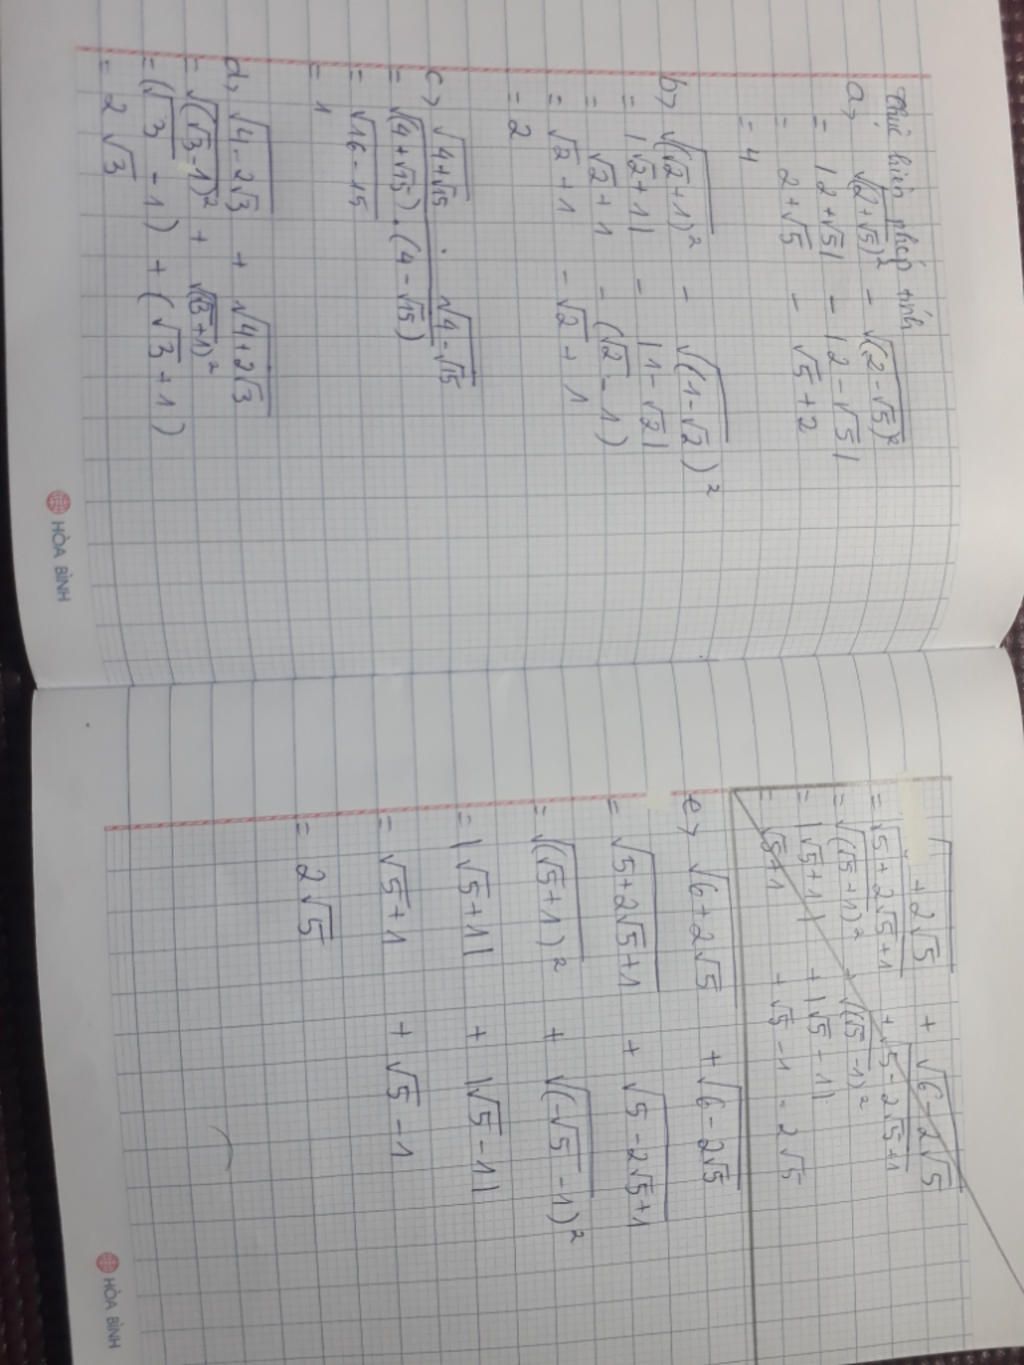 Thực hiện phép tính
a, √(2+√5)² - √(2-√5)²
= |2+√5| - |2-√5|
= 2+√5 - √5+2
= 4
b, √(√2+1)² - √(1-√2)²
= |√2+1| - |1-√2|
= √2+1 - (√2-1)
= √2+1 - √2+1
= 2
c, √4+√15 . √4-√15
= √(4+√15).(4-√15)
= √16-15
= 1
d, √4-2√3 + √4+2√3
= √(√3-1)² + √(√3+1)²
= (√3-1) + (√3+1)
= 2√3
HÒA BÌNH
+2√5 + √6-2√5
= √5+2√5+1 + √5-2√5+1
= √(√5+1)² + √(√5-1)²
= |√5+1| + |√5-1|
= √5+1 + √5-1 = 2√5
e, √6+2√5 + √6-2√5
= √5+2√5+1 + √5-2√5+1
= √(√5+1)² + √(-√5-1)²
= |√5+1| + |√5-1|
= √5+1 + √5-1
= 2√5
HÒA BÌNH